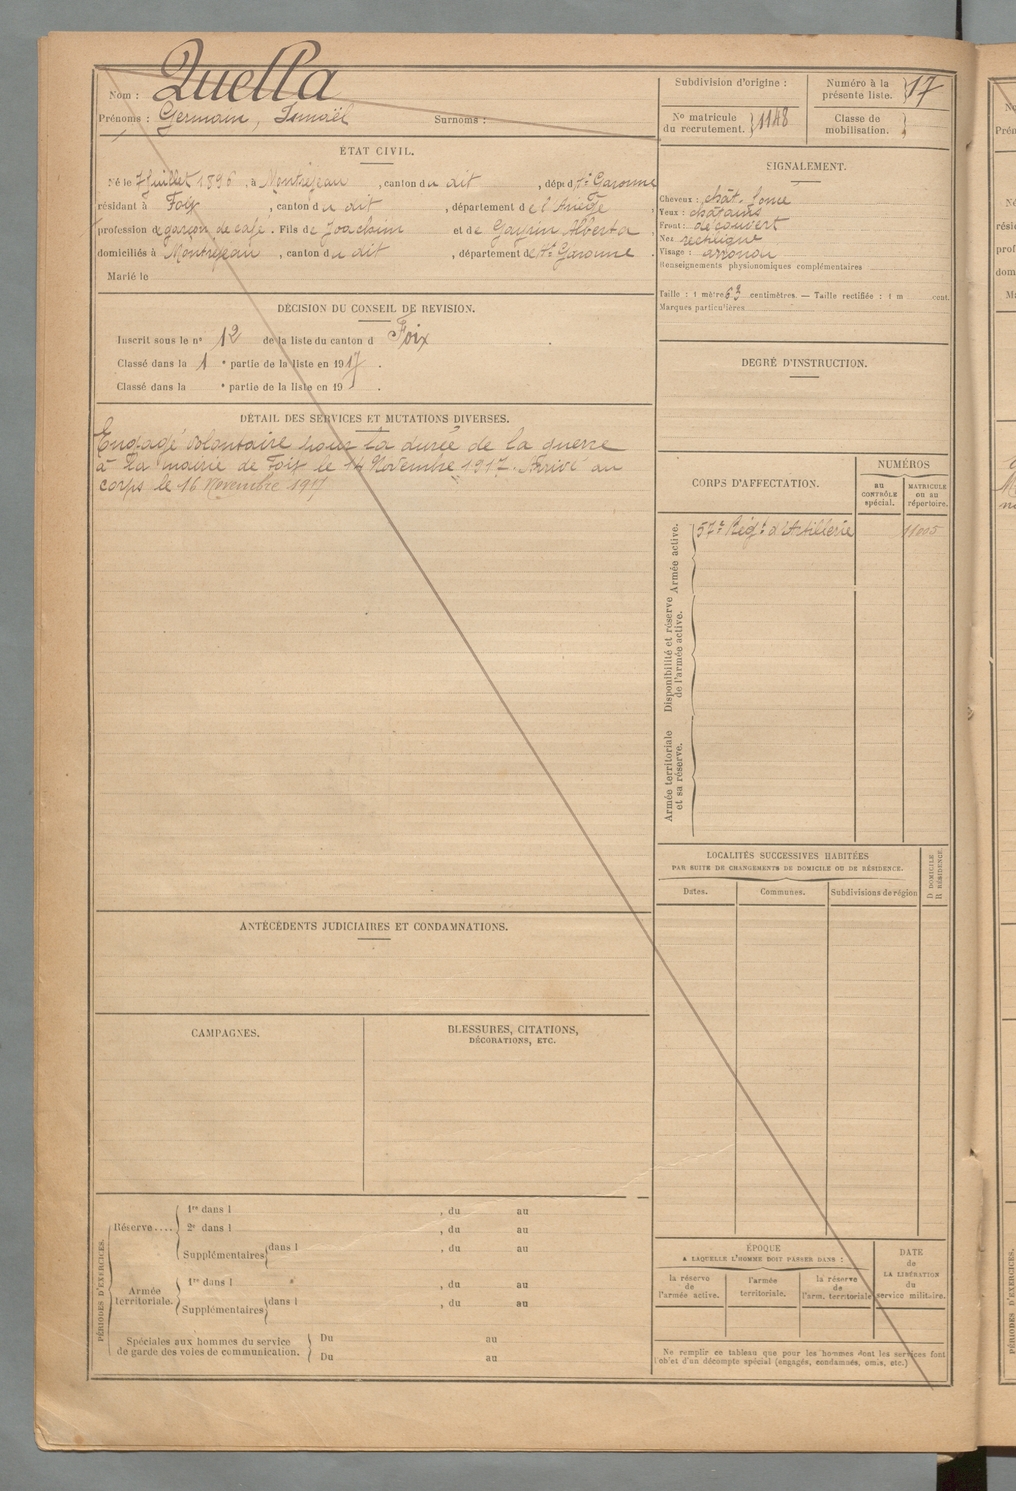 Nom : Quella
Prénoms : Germain, Ismaël Surnoms :
Subdivision d'origine :
Numéro à la présente liste. 17
No matricule du recrutement. 1148
Classe de mobilisation.
ÉTAT CIVIL.
Né le 7 Juillet 1896, à Montréjeau, canton du dit, dépt d Hte Garonne
résidant à Foix, canton du dit, département de l'Ariège
profession de garçon de café. Fils de Joachim et de Gayrin Alberta
domiciliés à Montréjeau, canton du dit, département d Hte Garonne.
Marié le
SIGNALEMENT.
Cheveux : chât. fonc
Yeux : châtains
Front : découvert
Nez rectiligne
Visage :
Renseignements physionomiques complémentaires
Taille : 1 mètre 63 centimètres. — Taille rectifiée : 1 m cent.
Marques particulières
DÉCISION DU CONSEIL DE REVISION.
Inscrit sous le no 12 de la liste du canton d Foix
Classé dans la 1 e partie de la liste en 1917.
Classé dans la e partie de la liste en 19 .
DEGRÉ D'INSTRUCTION.
DÉTAIL DES SERVICES ET MUTATIONS DIVERSES.
Engagé volontaire pour la durée de la guerre
à la mairie de Foix le 14 Novembre 1917. Arrivé au
corps le 16 Novembre 1917
CORPS D'AFFECTATION.
NUMÉROS
AU CONTRÔLE spécial.
MATRICULE ou au répertoire.
Armée active.
57e Régt d'Artillerie 11005
Disponibilité et réserve de l'armée active.
Armée territoriale et sa réserve.
LOCALITÉS SUCCESSIVES HABITÉES
PAR SUITE DE CHANGEMENTS DE DOMICILE OU DE RÉSIDENCE.
Dates. Communes. Subdivisions de région
D DOMICILE
R RÉSIDENCE.
ANTÉCÉDENTS JUDICIAIRES ET CONDAMNATIONS.
CAMPAGNES.
BLESSURES, CITATIONS,
DÉCORATIONS, ETC.
PÉRIODES D'EXERCICES.
Réserve....
1re dans l , du au
2e dans l , du au
Supplémentaires dans l , du au
Armée territoriale.
1re dans l , du au
Supplémentaires dans l , du au
Spéciales aux hommes du service
de garde des voies de communication.
Du au
Du au
ÉPOQUE
A LAQUELLE L'HOMME DOIT PASSER DANS :
la réserve de l'armée active.
l'armée territoriale.
la réserve de l'arm. territoriale
DATE de LA LIBÉRATION du service militaire.
Ne remplir ce tableau que pour les hommes dont les services font
l'objet d'un décompte spécial (engagés, condamnés, omis, etc.)